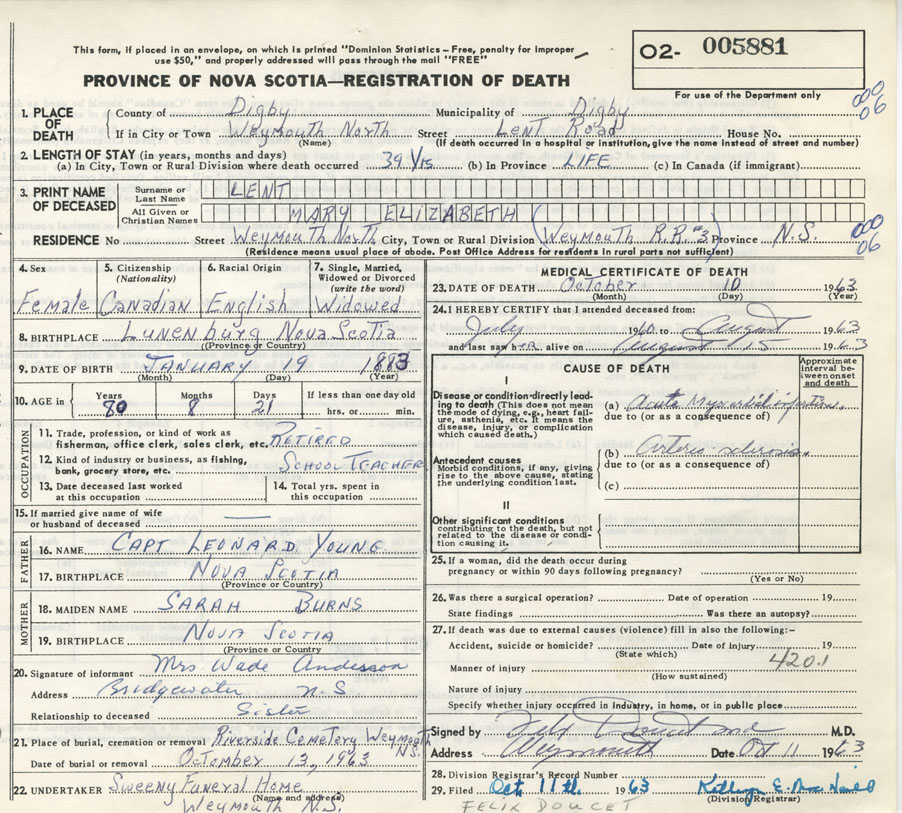 This form, if placed in an envelope, on which is printed "Dominion Statistics – Free, penalty for improper
use $50," and properly addressed will pass through the mail "FREE"
O2- 005881
For use of the Department only
PROVINCE OF NOVA SCOTIA—REGISTRATION OF DEATH
000
06
1. PLACE OF DEATH County of Digby Municipality of Digby
If in City or Town Weymouth North Street Lent Road House No.
(Name) (If death occurred in a hospital or institution, give the name instead of street and number)
2. LENGTH OF STAY (in years, months and days)
(a) In City, Town or Rural Division where death occurred 39 Yrs (b) In Province LIFE (c) In Canada (if immigrant)
3. PRINT NAME OF DECEASED Surname or Last Name LENT
All Given or Christian Names MARY ELIZABETH
000
06
RESIDENCE No Street Weymouth North City, Town or Rural Division (Weymouth R.R #3) Province N.S.
(Residence means usual place of abode. Post Office Address for residents in rural parts not sufficient)
4. Sex Female
5. Citizenship (Nationality) Canadian
6. Racial Origin English
7. Single, Married, Widowed or Divorced (write the word) Widowed
8. BIRTHPLACE Lunenburg Nova Scotia
(Province or Country)
9. DATE OF BIRTH JANUARY 19 1883
(Month) (Day) (Year)
10. AGE in Years 80 Months 8 Days 21 If less than one day old hrs. or min.
OCCUPATION
11. Trade, profession, or kind of work as fisherman, office clerk, sales clerk, etc. RETIRED
12. Kind of industry or business, as fishing, bank, grocery store, etc. SCHOOL TEACHER
13. Date deceased last worked at this occupation
14. Total yrs. spent in this occupation
15. If married give name of wife or husband of deceased —
FATHER
16. NAME CAPT LEONARD YOUNG
17. BIRTHPLACE NOVA SCOTIA
(Province or Country)
MOTHER
18. MAIDEN NAME SARAH BURNS
19. BIRTHPLACE NOVA SCOTIA
(Province or Country
20. Signature of informant Mrs Wade Anderson
Address Bridgewater N.S
Relationship to deceased Sister
21. Place of burial, cremation or removal Riverside Cemetery Weymouth N.S.
Date of burial or removal October 13, 1963
22. UNDERTAKER Sweeny Funeral Home
(Name and address)
Weymouth N.S.
MEDICAL CERTIFICATE OF DEATH
23. DATE OF DEATH October 10 1963
(Month) (Day) (Year)
24. I HEREBY CERTIFY that I attended deceased from:
July 1960 to August 1963
and last saw her alive on August 15 1963
CAUSE OF DEATH
Approximate interval between onset and death
I
Disease or condition directly leading to death (This does not mean the mode of dying, e.g., heart failure, asthenia, etc. It means the disease, injury, or complication which caused death.)
(a) Acute Myocardial infarction
due to (or as a consequence of)
Antecedent causes
Morbid conditions, if any, giving rise to the above cause, stating the underlying condition last.
(b) Arterio sclerosis
due to (or as a consequence of)
(c)
II
Other significant conditions
contributing to the death, but not related to the disease or condition causing it.
25. If a woman, did the death occur during pregnancy or within 90 days following pregnancy?
(Yes or No)
26. Was there a surgical operation? Date of operation 19
State findings Was there an autopsy?
27. If death was due to external causes (violence) fill in also the following:–
Accident, suicide or homicide? Date of injury 19
(State which)
420.1
Manner of injury
(How sustained)
Nature of injury
Specify whether injury occurred in industry, in home, or in public place
Signed by M.D.
Address Weymouth Date Oct 11 1963
28. Division Registrar's Record Number
29. Filed Oct 11th. 1963 Kathryn E. MacNeill
(Division Registrar)
FELIX DOUCET